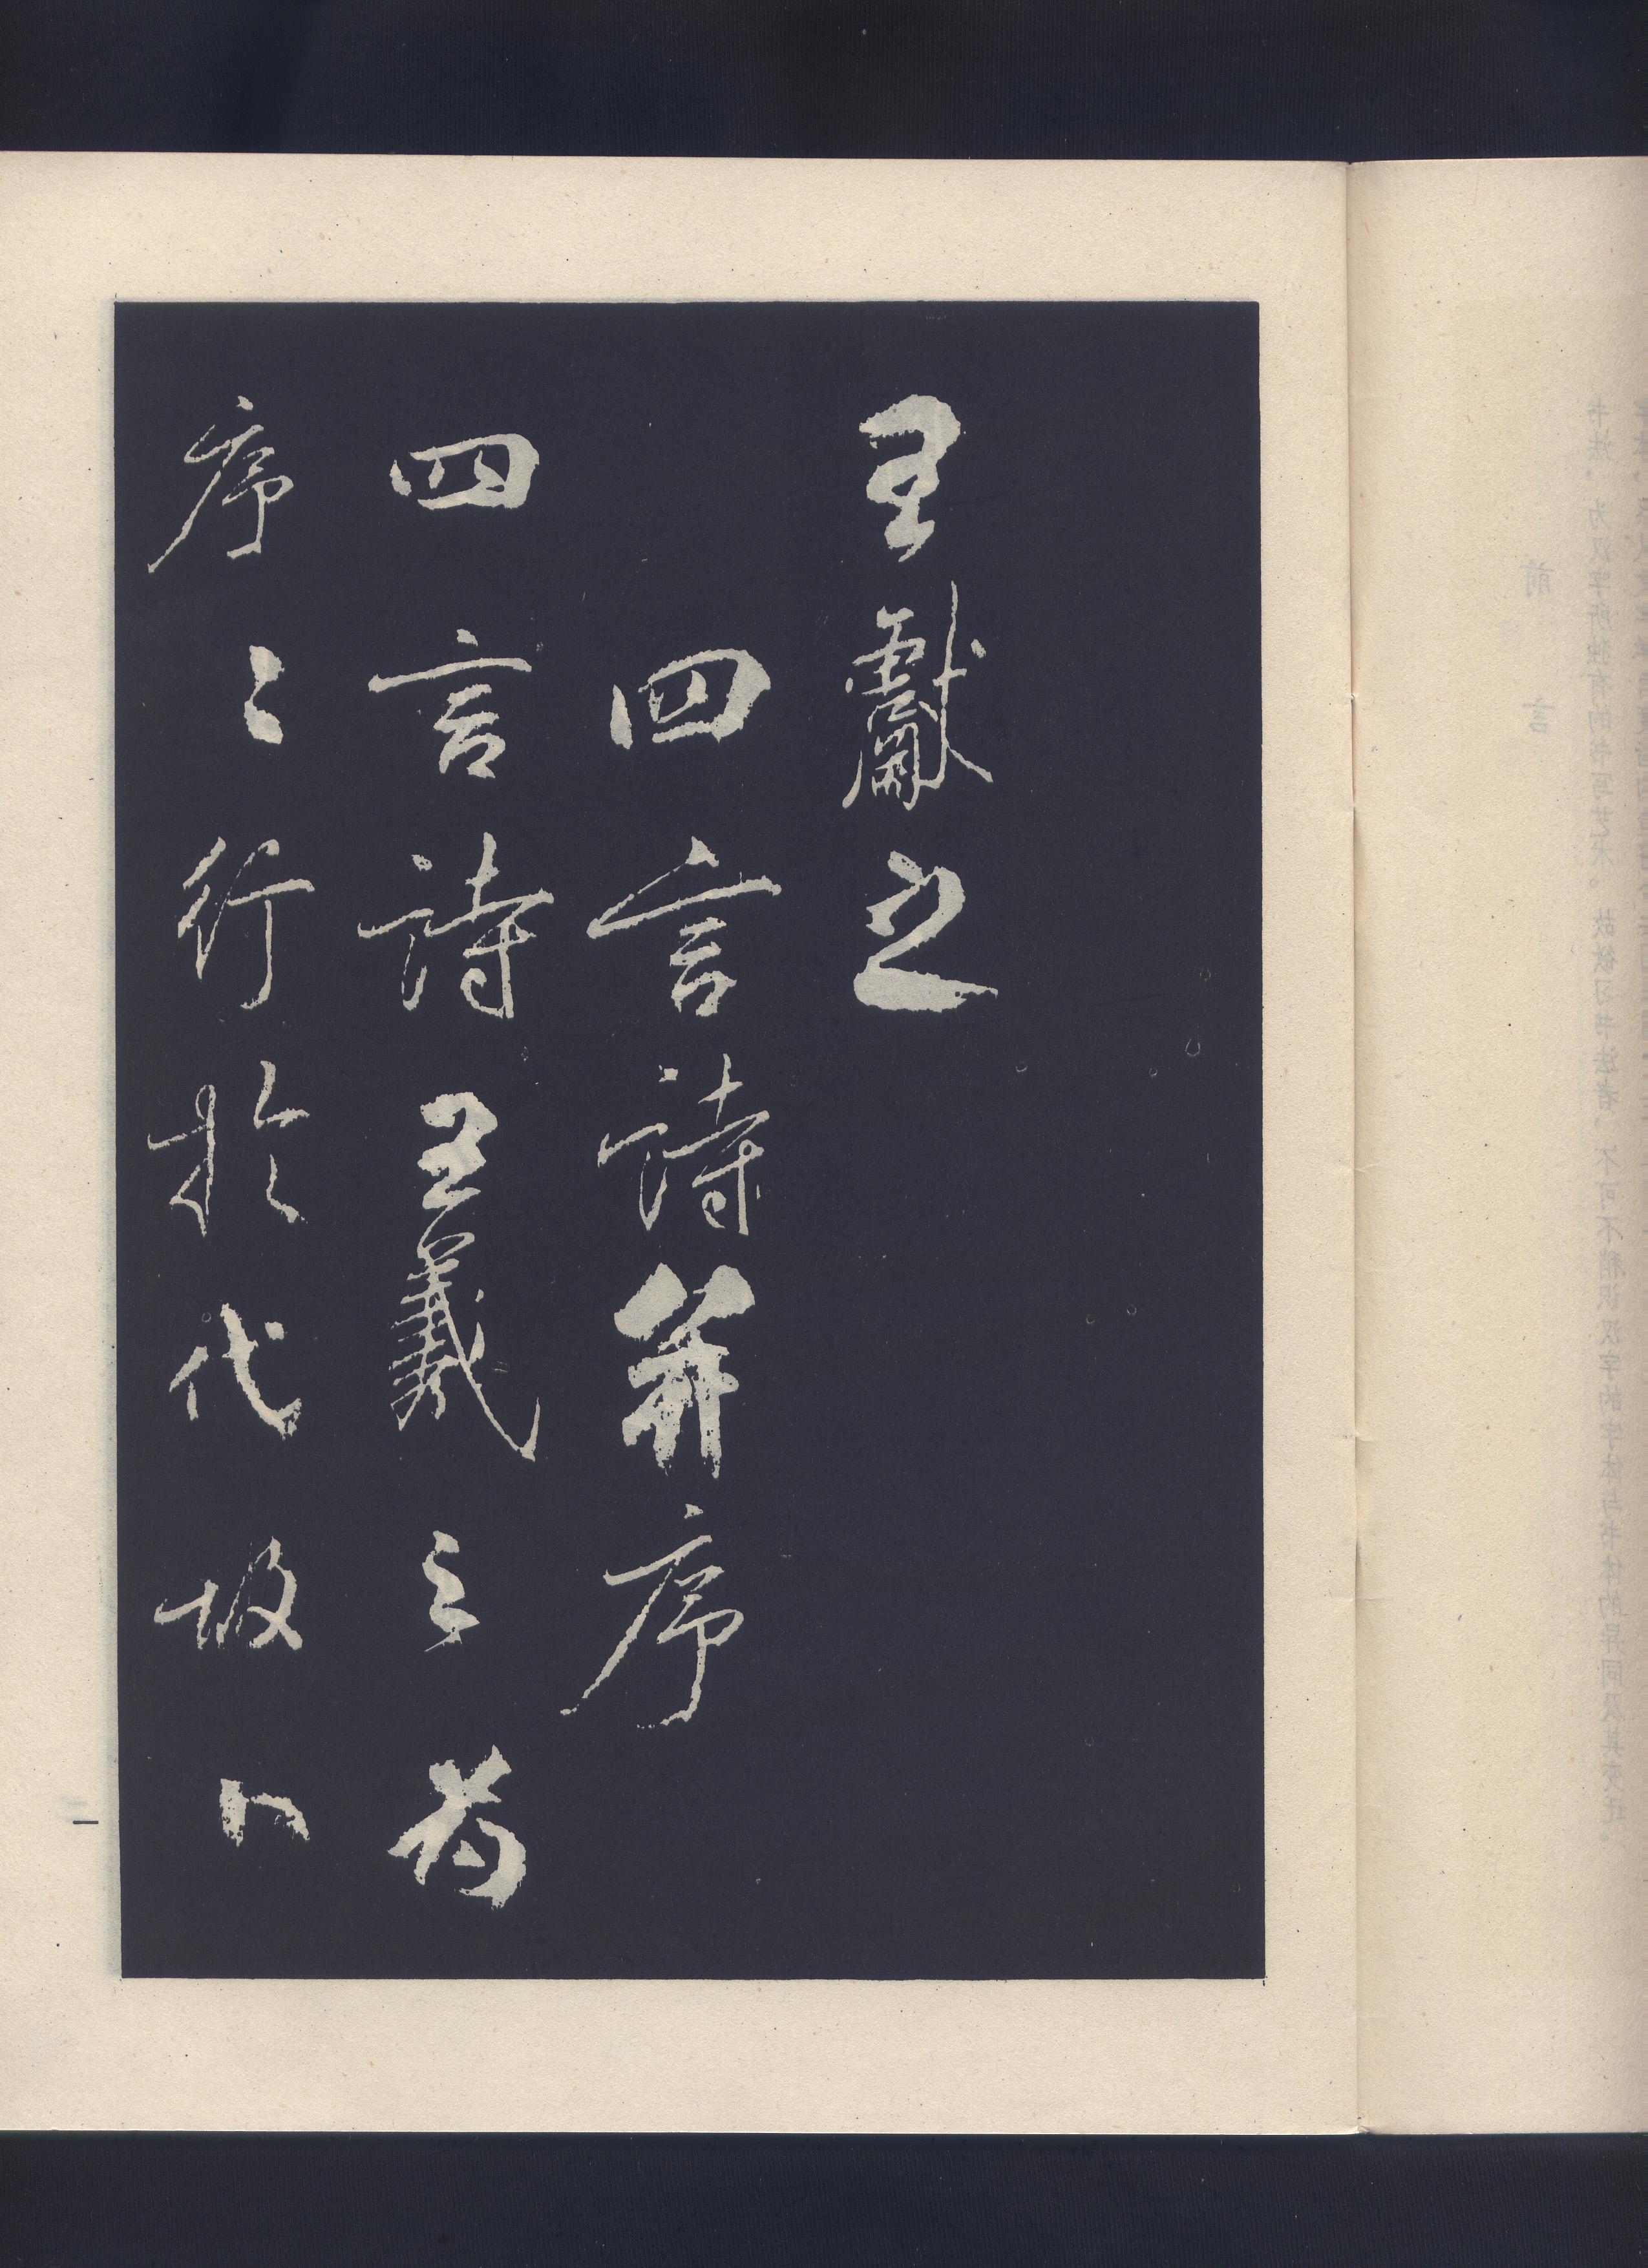 王獻之
四言詩并序
四言詩王羲之為
序〻行於代故不
一